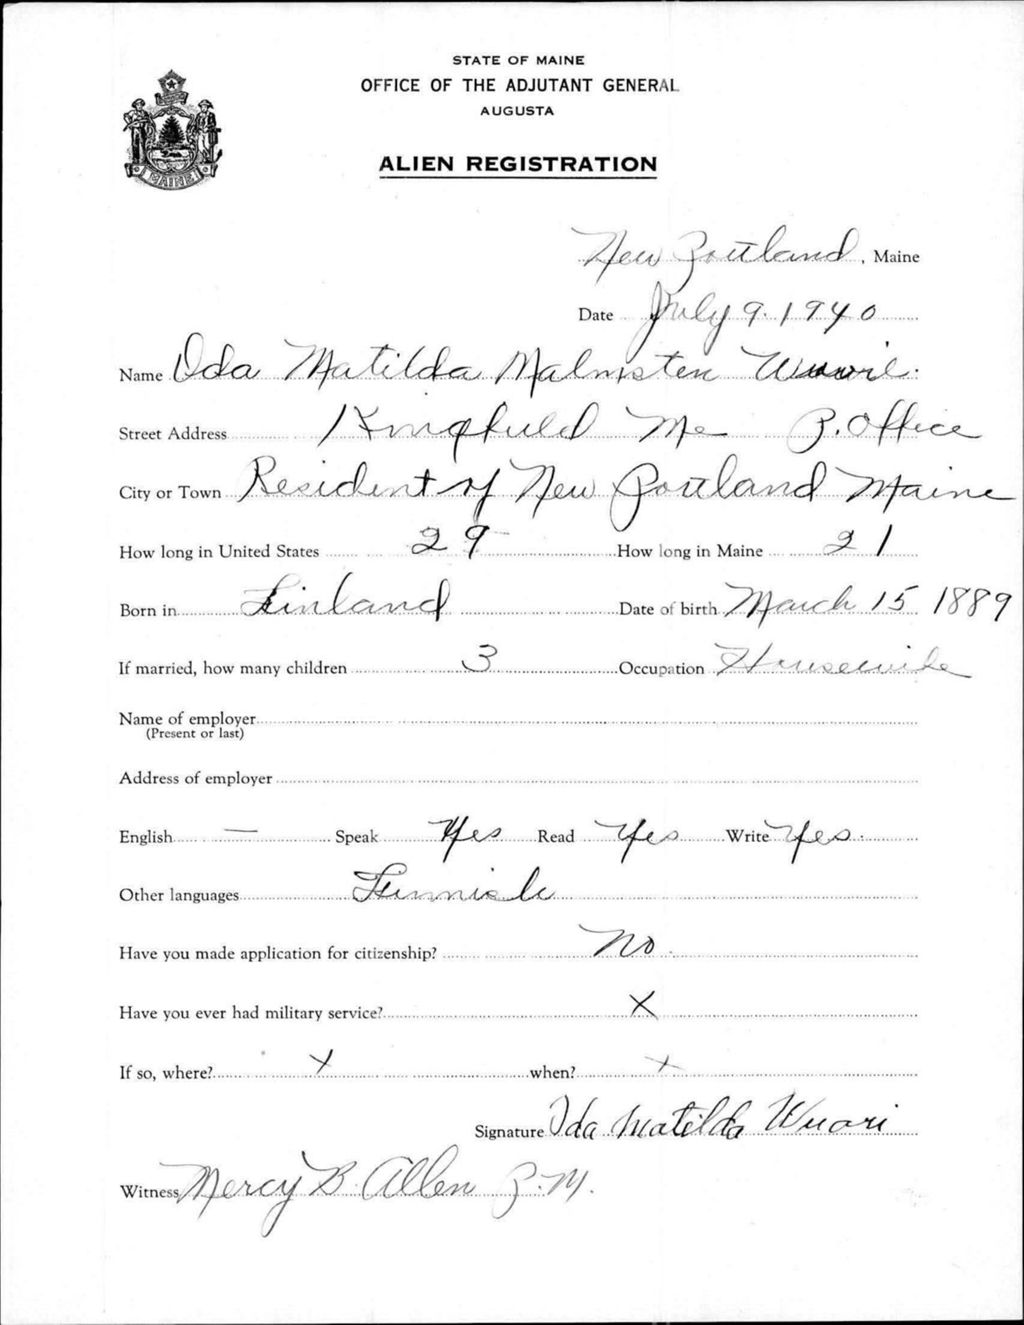 STATE OF MAINE
OFFICE OF THE ADJUTANT GENERAL
AUGUSTA
ALIEN REGISTRATION
MAINE
New Portland, Maine
Date July 9. 1940
Name Ida Matilda Malmsten
Street Address Kingfield Me P. Office
City or Town Resident of New Portland Maine
How long in United States 29 How long in Maine 21
Born in Finland Date of birth March 15 1889
If married, how many children 3 Occupation Housewife
Name of employer
(Present or last)
Address of employer
English — Speak Yes Read Yes Write Yes.
Other languages Finnish
Have you made application for citizenship? No.
Have you ever had military service? X
If so, where? X when? X
Signature Ida Matilda Wuori
Witness Mercy B. Allen P.M.